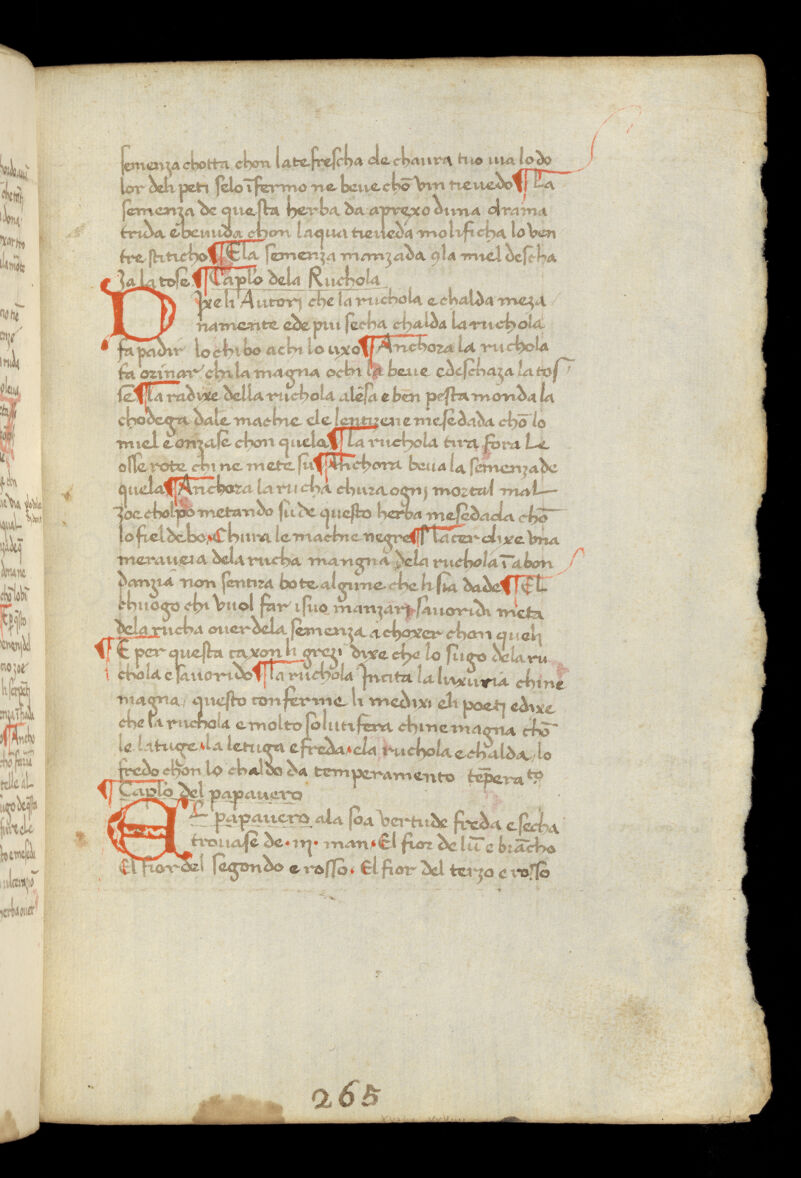 semenza chotta chon late frescha de chaura tuo uia lo do
lor deli peti se lo īfermo ne beue chō vin tieuedo ¶ La
semenza de questa herba da aprexo duna drama
trida e beuuda chon laqua tieueda molificha lo ven
tre stiticho ¶ E la semenza manzada ꝯ la miel descha
za la tose ¶ Caplo dela Ruchola
Dixe li Autori che la ruchola e chalda meza
namente e de piui secha chalda la ruchola
fa padir lo chibo a chi lo uxo ¶ Anchora la ruchola
fa orinar chi la magna o chi la beue e deschaza la tos
se ¶ La radixe della ruchola alesa e ben pesta monda la
chodega dale machie e le lentizene mesedada chō lo
miel e onzase chon quela ¶ la ruchola tira fora le
osse rote chi ne mete su ¶ Anchora beua la semenza de
quela ¶ Anchora la rucha chura ogni mortal mal
zoe cholpo metando su de questo herba mesedada chō
lo fiel de bo · Chura le machie negre ¶ Macer dixe vna
meraueia dela rucha mangna dela ruchola ī abon
danzia non sentira bote algune che li sia dade ¶ El
chuogo chi vuol far i suo manzari sauoridi meta
dela rucha ouer dela semenza a choxer chon queli
¶ E per questa caxon li grezi dixe che lo sugo dela ru
chola e sauorido ¶ la ruchola Incita la luxuria chi ne
magna, questo conferme li medixi e li poeti e dixe
che la ruchola e molto solutifera chi ne magna chō
le latuge · la letuga e freda · e la ruchola e chalda, lo
fredo chon lo chaldo da temperamento tēperato
¶ Caplo del papauero
EL papauero a la soa vertude freda e secha
trouase de · iij · man · El fior de lū e biācho
El fior del segondo e rosso · El fior del terzo e rosso
265